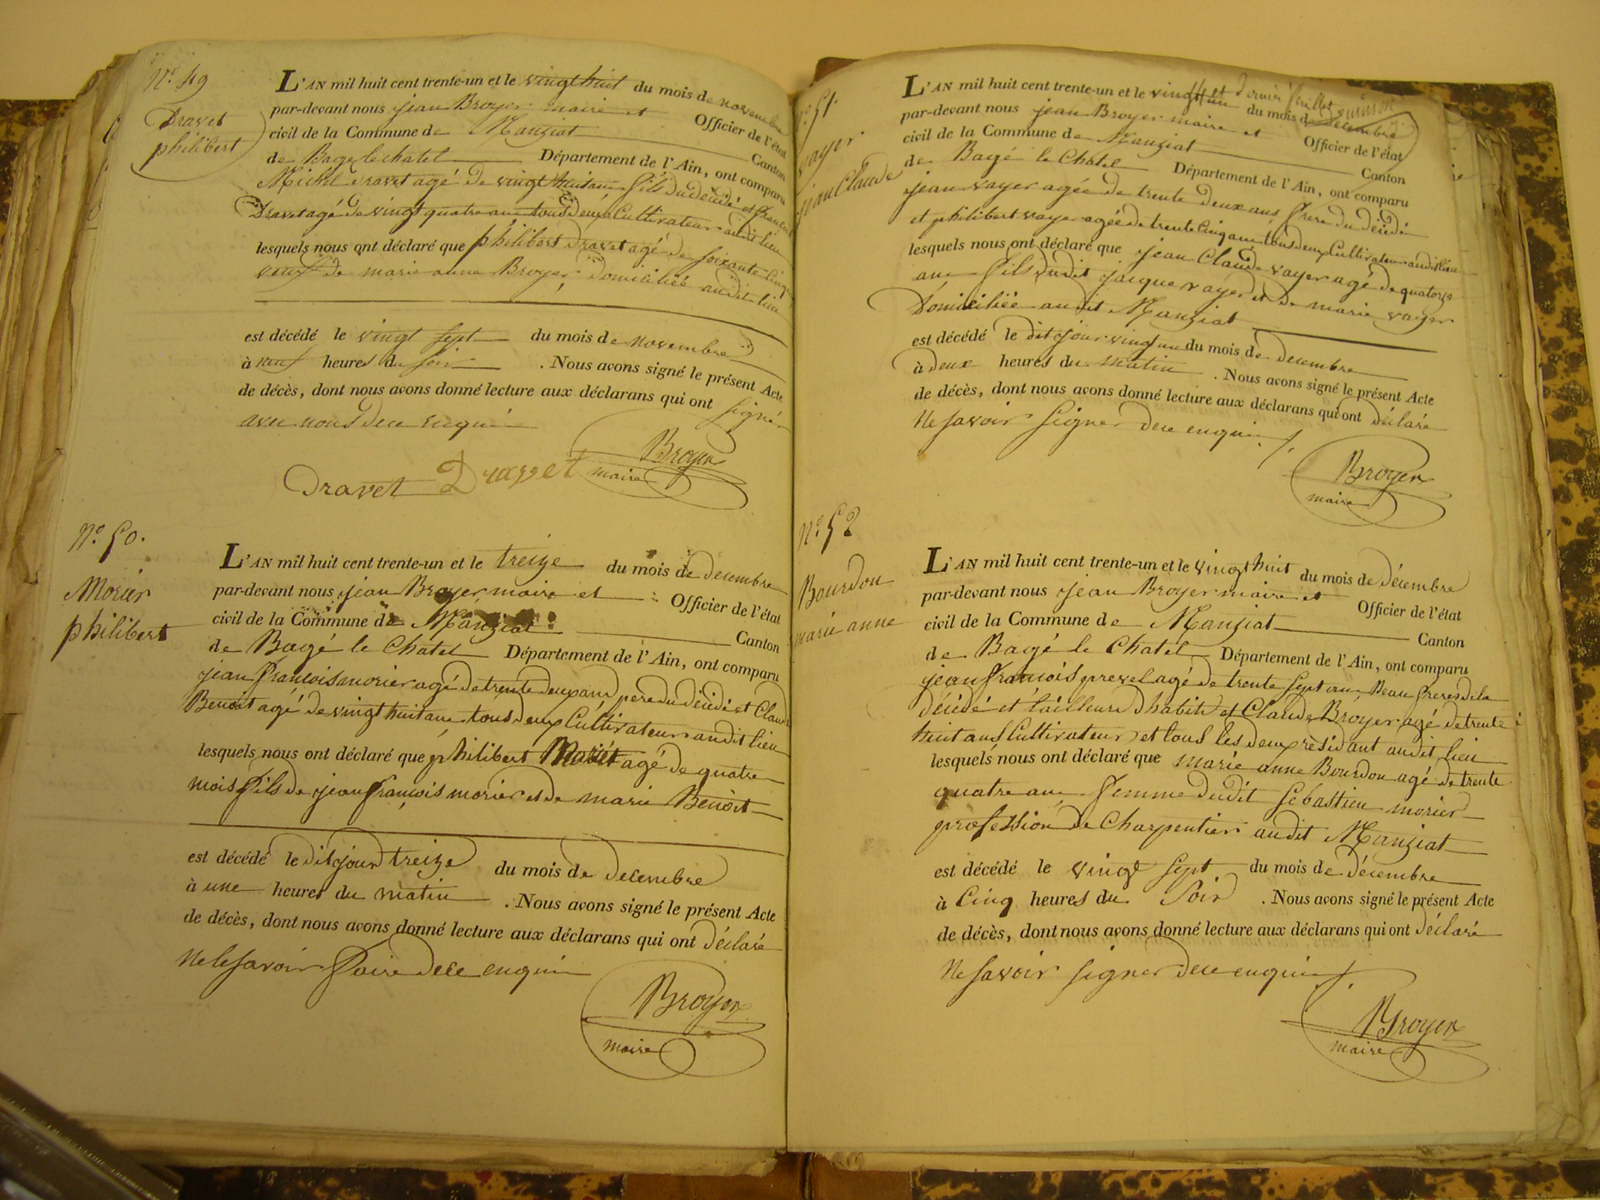 N.º 49
Dravet
philibert
L'AN mil huit cent trente-un et le vingt huit du mois de novembre
par-devant nous jean Broyer maire et Officier de l'état
civil de la Commune de Manziat Canton
de Bagé le chatel Département de l'Ain, ont comparu
Michel Dravet agé de vingt huit ans fils du décédé et
Dravet agé de vingt quatre ans tous deux Cultivateurs audit lieu
lesquels nous ont déclaré que philibert Dravet agé de soixante cinq
veuf de marie anne Broyer domiciliée audit lieu
est décédé le vingt sept du mois de novembre
à neuf heures du soir . Nous avons signé le présent Acte
de décès, dont nous avons donné lecture aux déclarans qui ont signé
avec nous de ce enquis
Broyer
maire
Dravet Dravet
N.º 50.
Morier
philibert
L'AN mil huit cent trente-un et le treize du mois de décembre
par-devant nous jean Broyer maire et Officier de l'état
civil de la Commune de Manziat Canton
de Bagé le Chatel Département de l'Ain, ont comparu
jean francois morier agé de trente deux ans pere du décédé et Claude
Benoit agé de vingt huit ans tous deux Cultivateurs audit lieu
lesquels nous ont déclaré que philibert agé de quatre
mois fils de jean francois morier et de marie Benoit
est décédé le dit jour treize du mois de decembre
à une heures du matin . Nous avons signé le présent Acte
de décès, dont nous avons donné lecture aux déclarans qui ont déclaré
Ne le savoir faire de ce enquis
Broyer
maire
N.º 51
vayer
jean Claude
et dernier feuillet
L'AN mil huit cent trente-un et le vingt un du mois de décembre
par-devant nous jean Broyer maire et Officier de l'état
civil de la Commune de Manziat Canton
de Bagé le Chatel Département de l'Ain, ont comparu
jean vayer agée de trente deux ans frere du décédé
et philibert vayer agée de trente cinq ans tous deux Cultivateurs audit lieu
lesquels nous ont déclaré que jean Claude vayer agé de quatorze
ans fils dudit jacque vayer et de marie vayer
Domiciliée audit Manziat
est décédé le dit jour vingt un du mois de decembre
à deux heures du matin . Nous avons signé le présent Acte
de décès, dont nous avons donné lecture aux déclarans qui ont déclaré
Ne savoir signer de ce enquis
Broyer
maire
N.º 52
Bourdon
marie anne
L'AN mil huit cent trente-un et le vingt huit du mois de décembre
par-devant nous jean Broyer maire et Officier de l'état
civil de la Commune de Manziat Canton
de Bagé le Chatel Département de l'Ain, ont comparu
jean francois prevel agé de trente sept ans Beau frere de la
décédé et tailleur d'habits et Claude Broyer agé de trente
huit ans Cultivateur et tous les deux residant audit lieu
lesquels nous ont déclaré que marie anne Bourdon agé de trente
quatre ans femme dudit sebastien morier
profession de Charpentier audit Manziat
est décédé le vingt sept du mois de décembre
à Cinq heures du Soir . Nous avons signé le présent Acte
de décès, dont nous avons donné lecture aux déclarans qui ont déclaré
Ne savoir signer de ce enquis
Broyer
maire